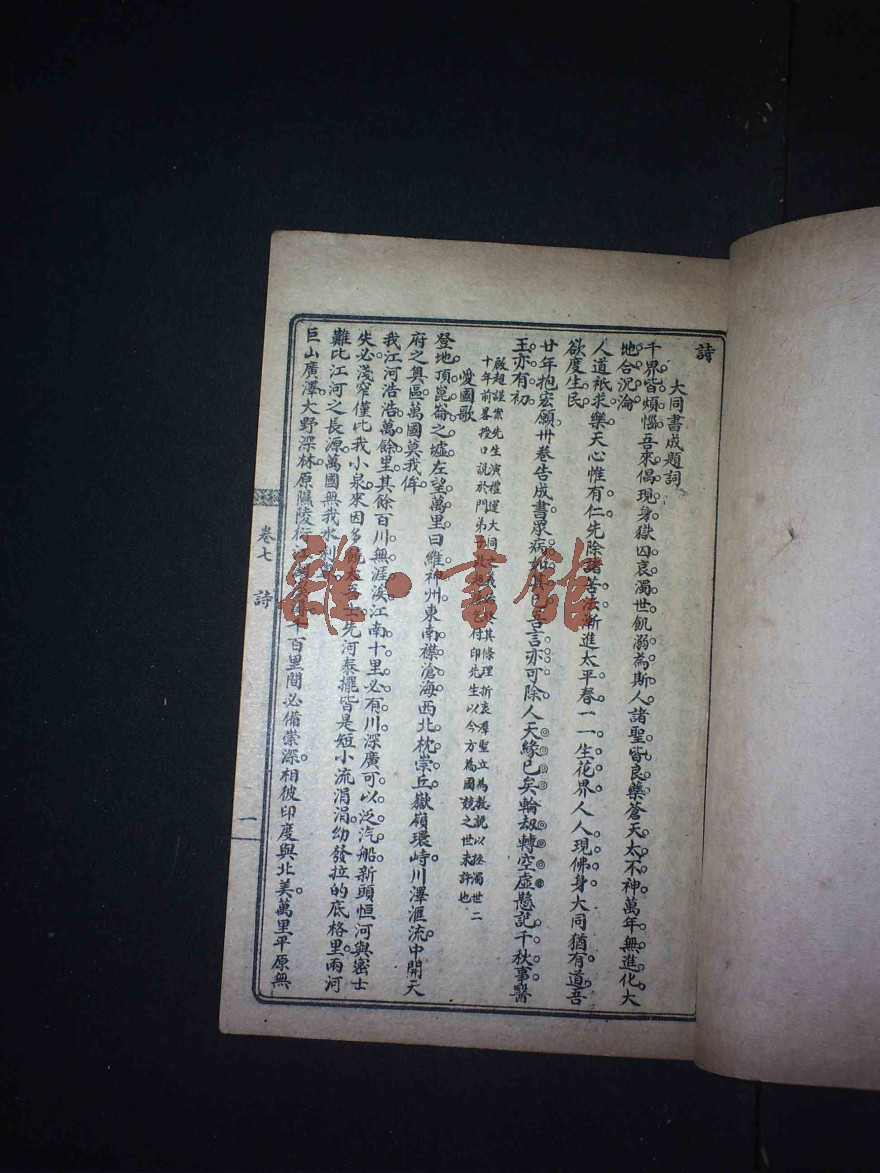 詩
大同書成題詞
千界皆煩惱吾來偶現身獄囚哀濁世飢溺為斯人諸聖皆良藥蒼天太不神萬年無進化大
地合沉淪
人道祇求樂天心惟有仁先除諸苦法漸進太平春一一生花界人人現佛身大同猶有道吾
欲度生民
廿年抱宏願卅卷告成書眾病如其已吾言亦可除人天緣已矣輪劫轉空虛懸記千秋事醫
王亦有初
啟超謹案先生演禮運大同之義其條理折衷羣聖立為教說以拯濁世二
十年前畧授口說於門弟子付印先生以今方為國競之世未許也
愛國歌
登地頂崑崙之墟左望萬里曰維神州東南襟滄海西北枕崇丘嶽嶺環峙川澤滙流中開天
府之奧區萬國莫我侔
我江河浩浩萬餘里其餘百川無涯涘江南十里必有川深廣可以泛汽船新頭恒河與密士
失必淺窄僅比我小泉來因多先河泰擺皆是短小流涓涓幼發拉的底格里兩河
難比江河之長源萬國無我水利
巨山廣澤大野深林原隰陵衍百里間必備崇深相彼印度與北美萬里平原無
卷七
詩
一
雜·書館